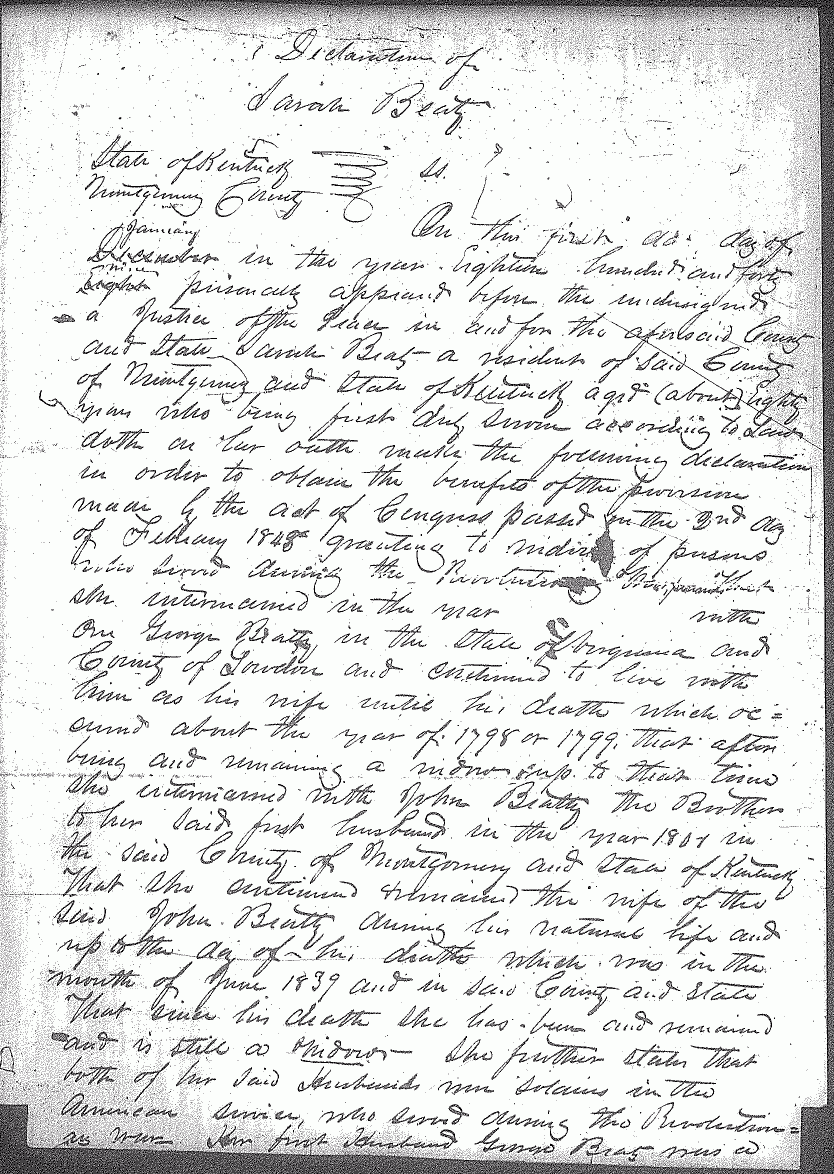 Declaration of
Sarah Beaty
State of Kentucky
Montgomery County ss.
On this first day of
January
December in the year Eighteen hundred and forty
nine
eight personally appeared before the undersigned
a Justice of the Peace in and for the aforesaid County
and State Sarah Beaty a resident of said County
of Montgomery and State of Kentucky aged (about) Eighty
years who being first duly sworn according to Law
doth on her oath make the following declaration
in order to obtain the benefits of the provision
made by the act of Congress passed on the 2nd day
of February 1848 granting to widows of persons
who served during the Revolutionary that
she intermarried in the year with
One George Beatty, in the State of Virginia and
County of Lowdon and continued to live with
him as his wife until his death which oc=
curred about the year of 1798 or 1799, that after
being and remaining a widow up to that time
she intermarried with John Beatty the Brother
to her said first husband in the year 1801 in
the said County of Montgomery and State of Kentucky
That she continued & remained the wife of the
said John Beatty during his natural life and
up to the day of his death which was in the
month of June 1839 and in said County and State
That since his death she has been and remained
and is still a Widow She further states that
both of her said Husbands were soldiers in the
American service, who served during the Revolution=
ary War Her first Husband George Beaty was a